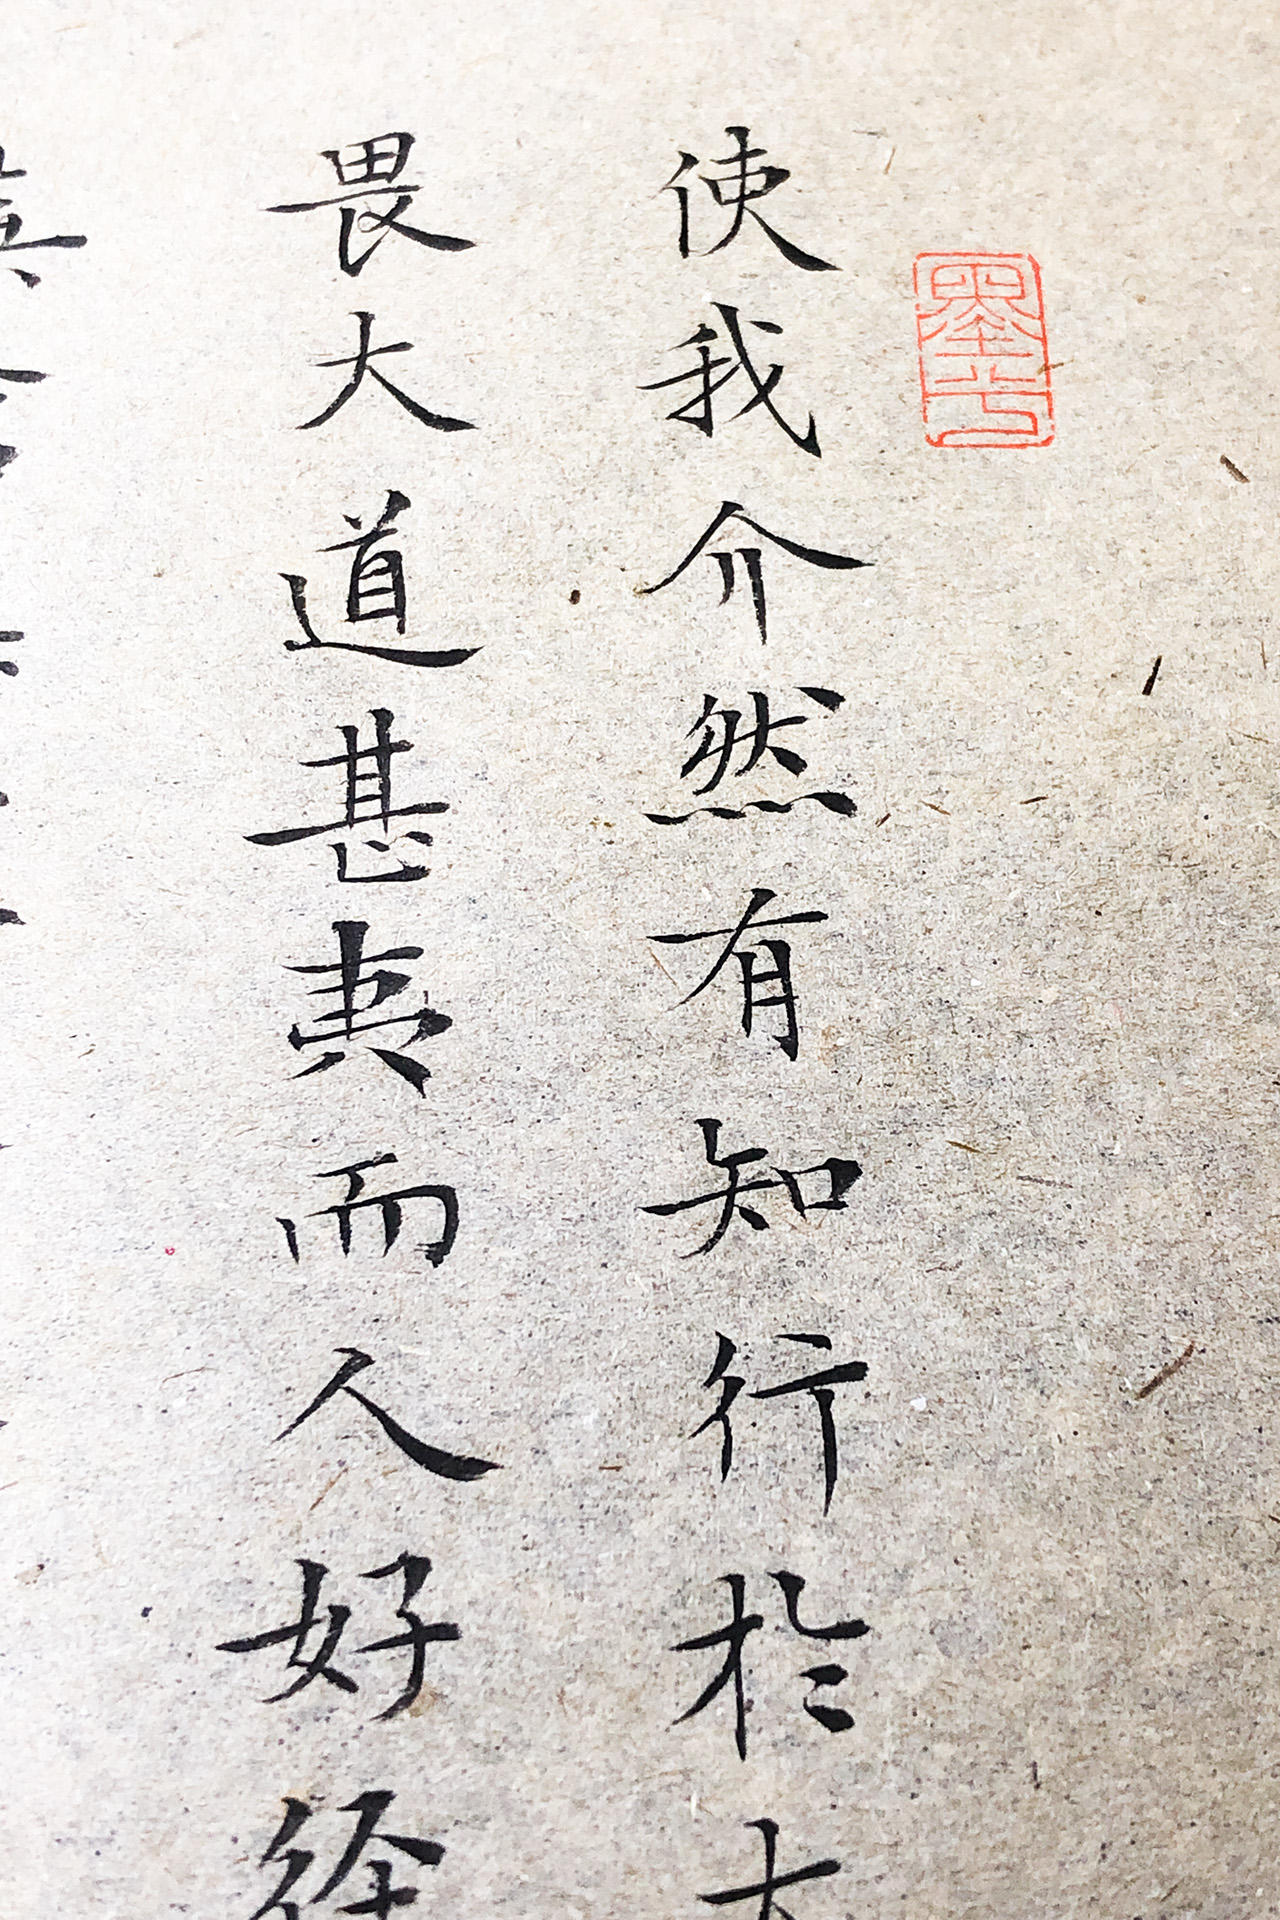 使我介然有知行於大
畏大道甚夷而人好径